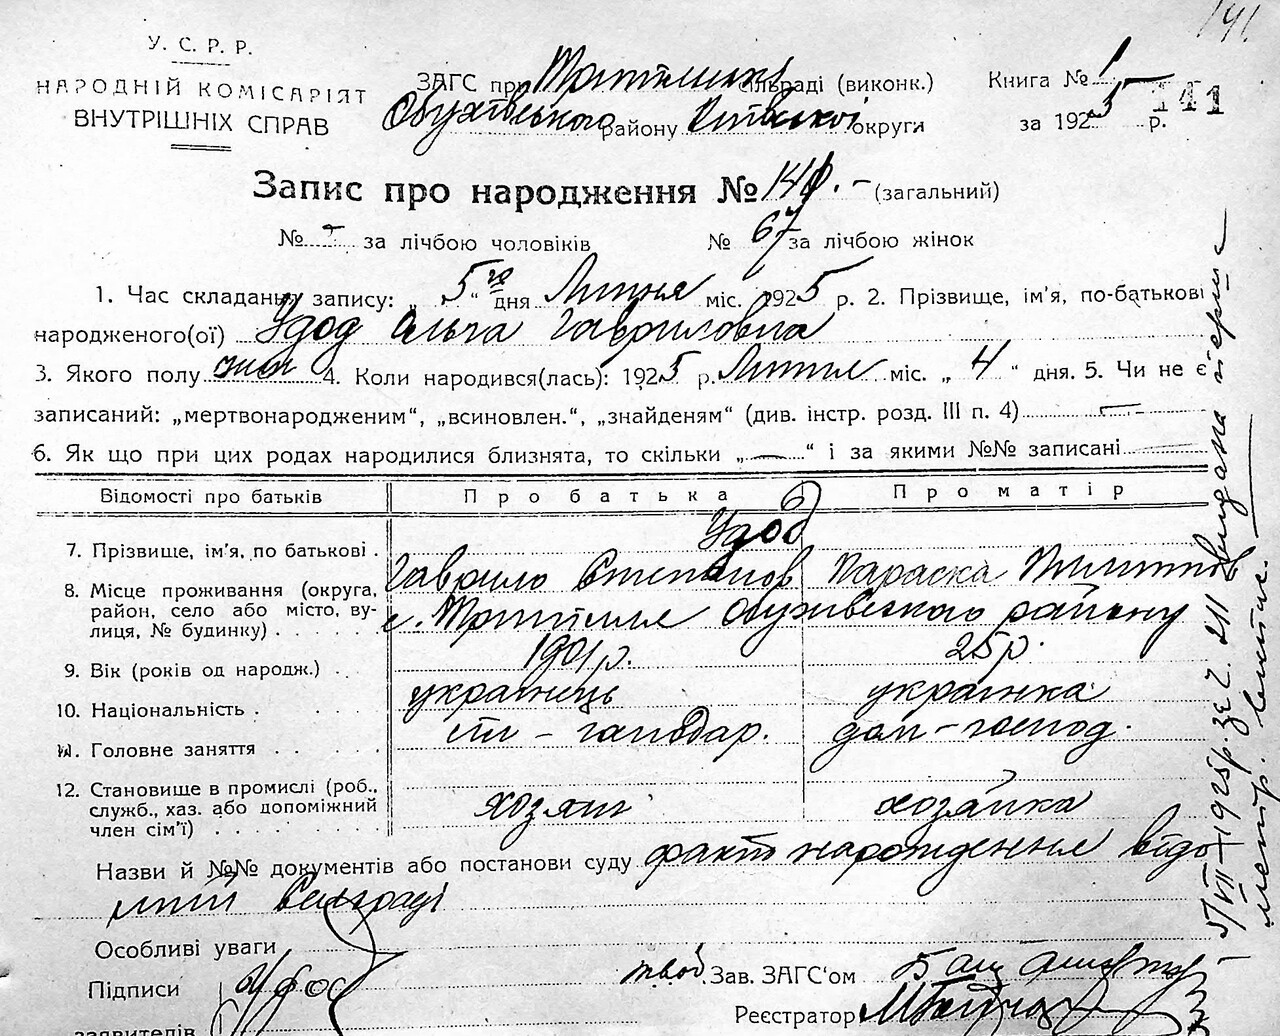 141.
У. С. Р. Р.
НАРОДНІЙ КОМІСАРІЯТ
ВНУТРІШНІХ СПРАВ
ЗАГС при сільраді (виконк.)
Обухівського району Київської округи
Книга № 1
за 1925 р.
141
Запис про народження № 141. – (загальний)
№ – за лічбою чоловіків № 67 за лічбою жінок
1. Час складання запису: „ 5го “ дня Липня міс. 1925 р. 2. Прізвище, ім'я, по-батькові
народженого(ої) Удод Ольга Гавриловна
3. Якого полу жін 4. Коли народився(лась): 1925 р. Липня міс. „ 4 “ дня. 5. Чи не є
записаний: „мертвонародженим“, „всиновлен.“, „знайденям“ (див. інстр. розд. III п. 4) –
6. Як що при цих родах народилися близнята, то скільки „ — “ і за якими №№ записані
Відомості про батьків Про батька Про матір
7. Прізвище, ім'я, по батькові . Удод
Гаврило Степанов Параска
8. Місце проживання (округа, район, село або місто, вулиця, № будинку) . . . . . с. Обухівського району
9. Вік (років од народж.) . 1901р. 25р.
10. Національність . українець українка
11. Головне заняття . . . . – господар. дом – господ.
12. Становище в промислі (роб., служб., хаз. або допоміжний член сім'ї) . . . . . . . хозяїн хозяйка
Назви й №№ документів або постанови суду факт народження відо
мий Сельраді
Особливі уваги
Підписи Удод
заявителів
Зав. ЗАГС‘ом
Реєстратор
5/VII 1925р. за ч. 211 видана перша
метр. витяг.